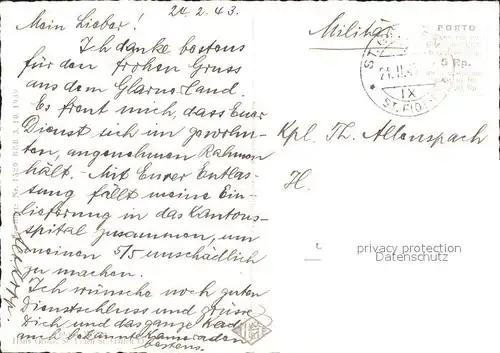 24.2.43.
Mein Lieber!
Ich danke bestens
für den frohen Gruss
aus dem Glarner-Land.
Es freut mich, dass Euer
Dienst sich im gewohn-
ten, angenehmen Rahmen
hält. - Mit Eurer Entlas-
sung fällt meine Ein-
lieferung in das Kantons-
spital zusammen, um
meinen 5/5 unschädlich
zu machen.
Ich wünsche noch guten
Dienstschluss und grüsse
Dich und das ganze Kader
auch bekannte Kameraden
bestens.
Militär
PORTO
5 Rp.
IX
Kpl. Th. Allenspach
H.
privacy protection
oldthing.de